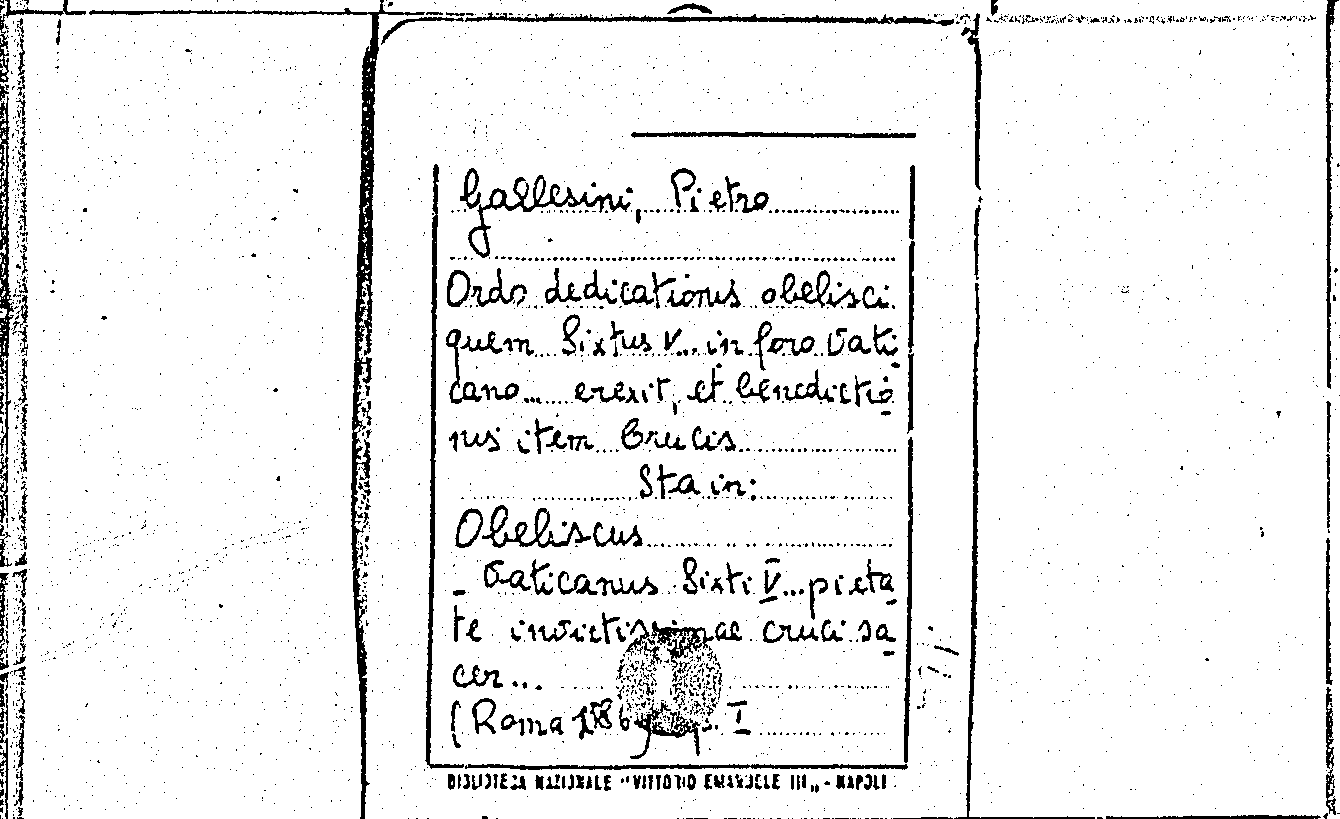 Gallesini, Pietro
Ordo dedicationis obelisci
quem Sixtus V... in foro Vati
cano... erexit, et benedictio
nis item Crucis
Sta in:
Obeliscus
- Vaticanus Sixti V... pieta
te invictissimae cruci sa
cer...
(Roma 1586 I
BIBLIOTECA NAZIONALE "VITTORIO EMANUELE III„ - NAPOLI